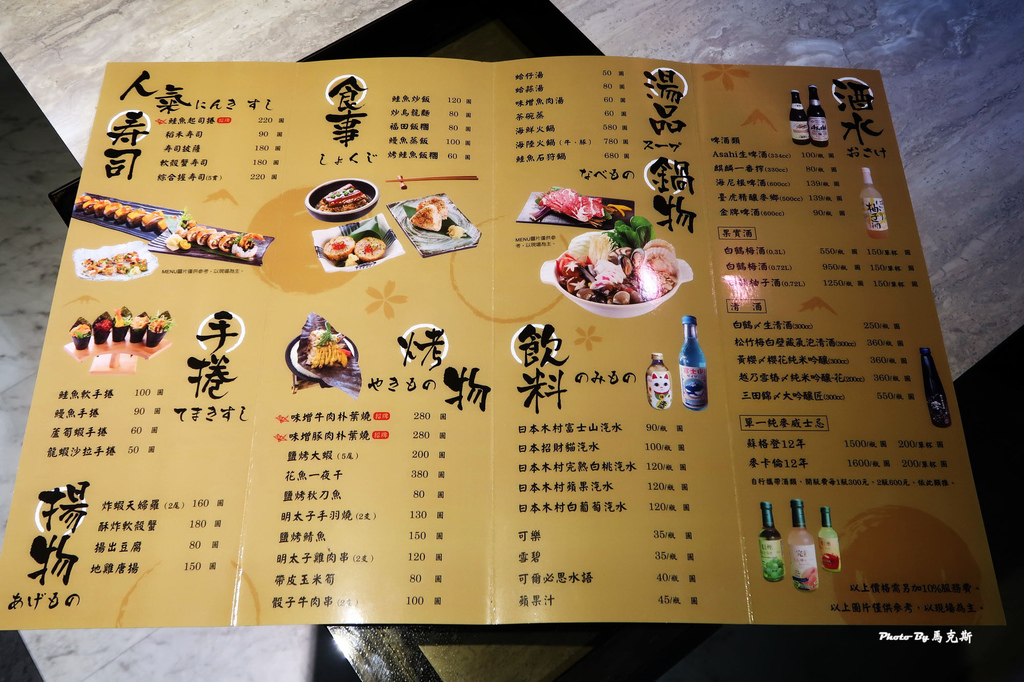 人氣にんき すし
壽司
鮭魚起司捲 招牌 220 圓
稻禾壽司 90 圓
壽司披薩 180 圓
軟殼蟹壽司 180 圓
綜合握壽司(5貫) 220 圓
MENU圖片僅供參考，以現場為主。
手捲
てまきすし
鮭魚軟手捲 100 圓
鰻魚手捲 90 圓
蘆筍蝦手捲 60 圓
龍蝦沙拉手捲 50 圓
揚物
あげもの
炸蝦天婦羅(2尾) 160 圓
酥炸軟殼蟹 180 圓
揚出豆腐 80 圓
地雞唐揚 150 圓
食事
しょくじ
鮭魚炒飯 120 圓
炒烏龍麵 80 圓
福田飯糰 80 圓
鰻魚蒸飯 100 圓
烤鮭魚飯糰 60 圓
烤物
やきもの
味增牛肉朴葉燒 招牌 280 圓
味增豚肉朴葉燒 招牌 280 圓
鹽烤大蝦(5尾) 200 圓
花魚一夜干 380 圓
鹽烤秋刀魚 80 圓
明太子手羽燒(2支) 130 圓
鹽烤鯖魚 150 圓
明太子雞肉串(2支) 120 圓
帶皮玉米筍 80 圓
骰子牛肉串 100 圓
湯品
スープ
鍋物
なべもの
蛤仔湯 50 圓
蛤蒜湯 80 圓
味增魚肉湯 60 圓
茶碗蒸 60 圓
海鮮火鍋 580 圓
海陸火鍋(牛、豚) 780 圓
鮭魚石狩鍋 680 圓
MENU圖片僅供參考，以現場為主。
飲料
のみもの
日本木村富士山汽水 90/瓶 圓
日本招財貓汽水 100/瓶 圓
日本木村完熟白桃汽水 120/瓶 圓
日本木村蘋果汽水 120/瓶 圓
日本木村白葡萄汽水 120/瓶 圓
可樂 35/瓶 圓
雪碧 35/瓶 圓
可爾必思水語 40/瓶 圓
蘋果汁 45/瓶 圓
酒水
おさけ
啤酒類
Asahi生啤酒(334cc) 100/瓶 圓
麒麟一番搾(330cc) 80/瓶 圓
海尼根啤酒(600cc) 139/瓶 圓
臺虎精釀麥鄉(500cc) 139/瓶 圓
金牌啤酒(600cc) 90/瓶 圓
果實酒
白鶴梅酒(0.3L) 550/瓶 圓 150/單杯 圓
白鶴梅酒(0.72L) 950/瓶 圓 150/單杯 圓
柚子酒(0.72L) 1250/瓶 圓 150/單杯 圓
清 酒
白鶴〆生清酒(300cc) 250/瓶 圓
松竹梅白壁藏氣泡清酒(300cc) 360/瓶 圓
黃櫻〆櫻花純米吟釀(300cc) 360/瓶 圓
越乃雪椿〆純米吟釀-花(200cc) 360/瓶 圓
三田錦〆大吟釀匠(300cc) 550/瓶 圓
單一純麥威士忌
蘇格登12年 1500/瓶 圓 200/單杯 圓
麥卡倫12年 1600/瓶 圓 200/單杯 圓
自行攜帶酒類，開瓶費每1瓶300元，2瓶600元，依此類推。
以上價格需另加10%服務費。
以上圖片僅供參考，以現場為主。
Photo By 馬克斯